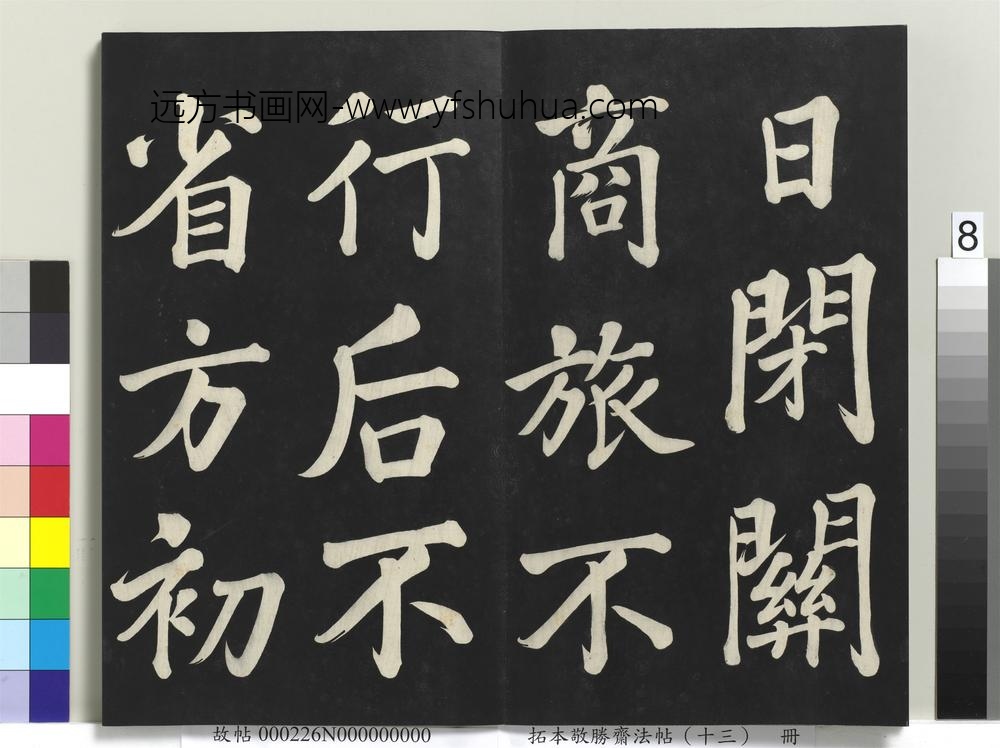 日閉關
商旅不
行后不
省方初
远方书画网-www.yfshuhua.com
8
故帖 000226N000000000
拓本敬勝齋法帖（十三） 冊